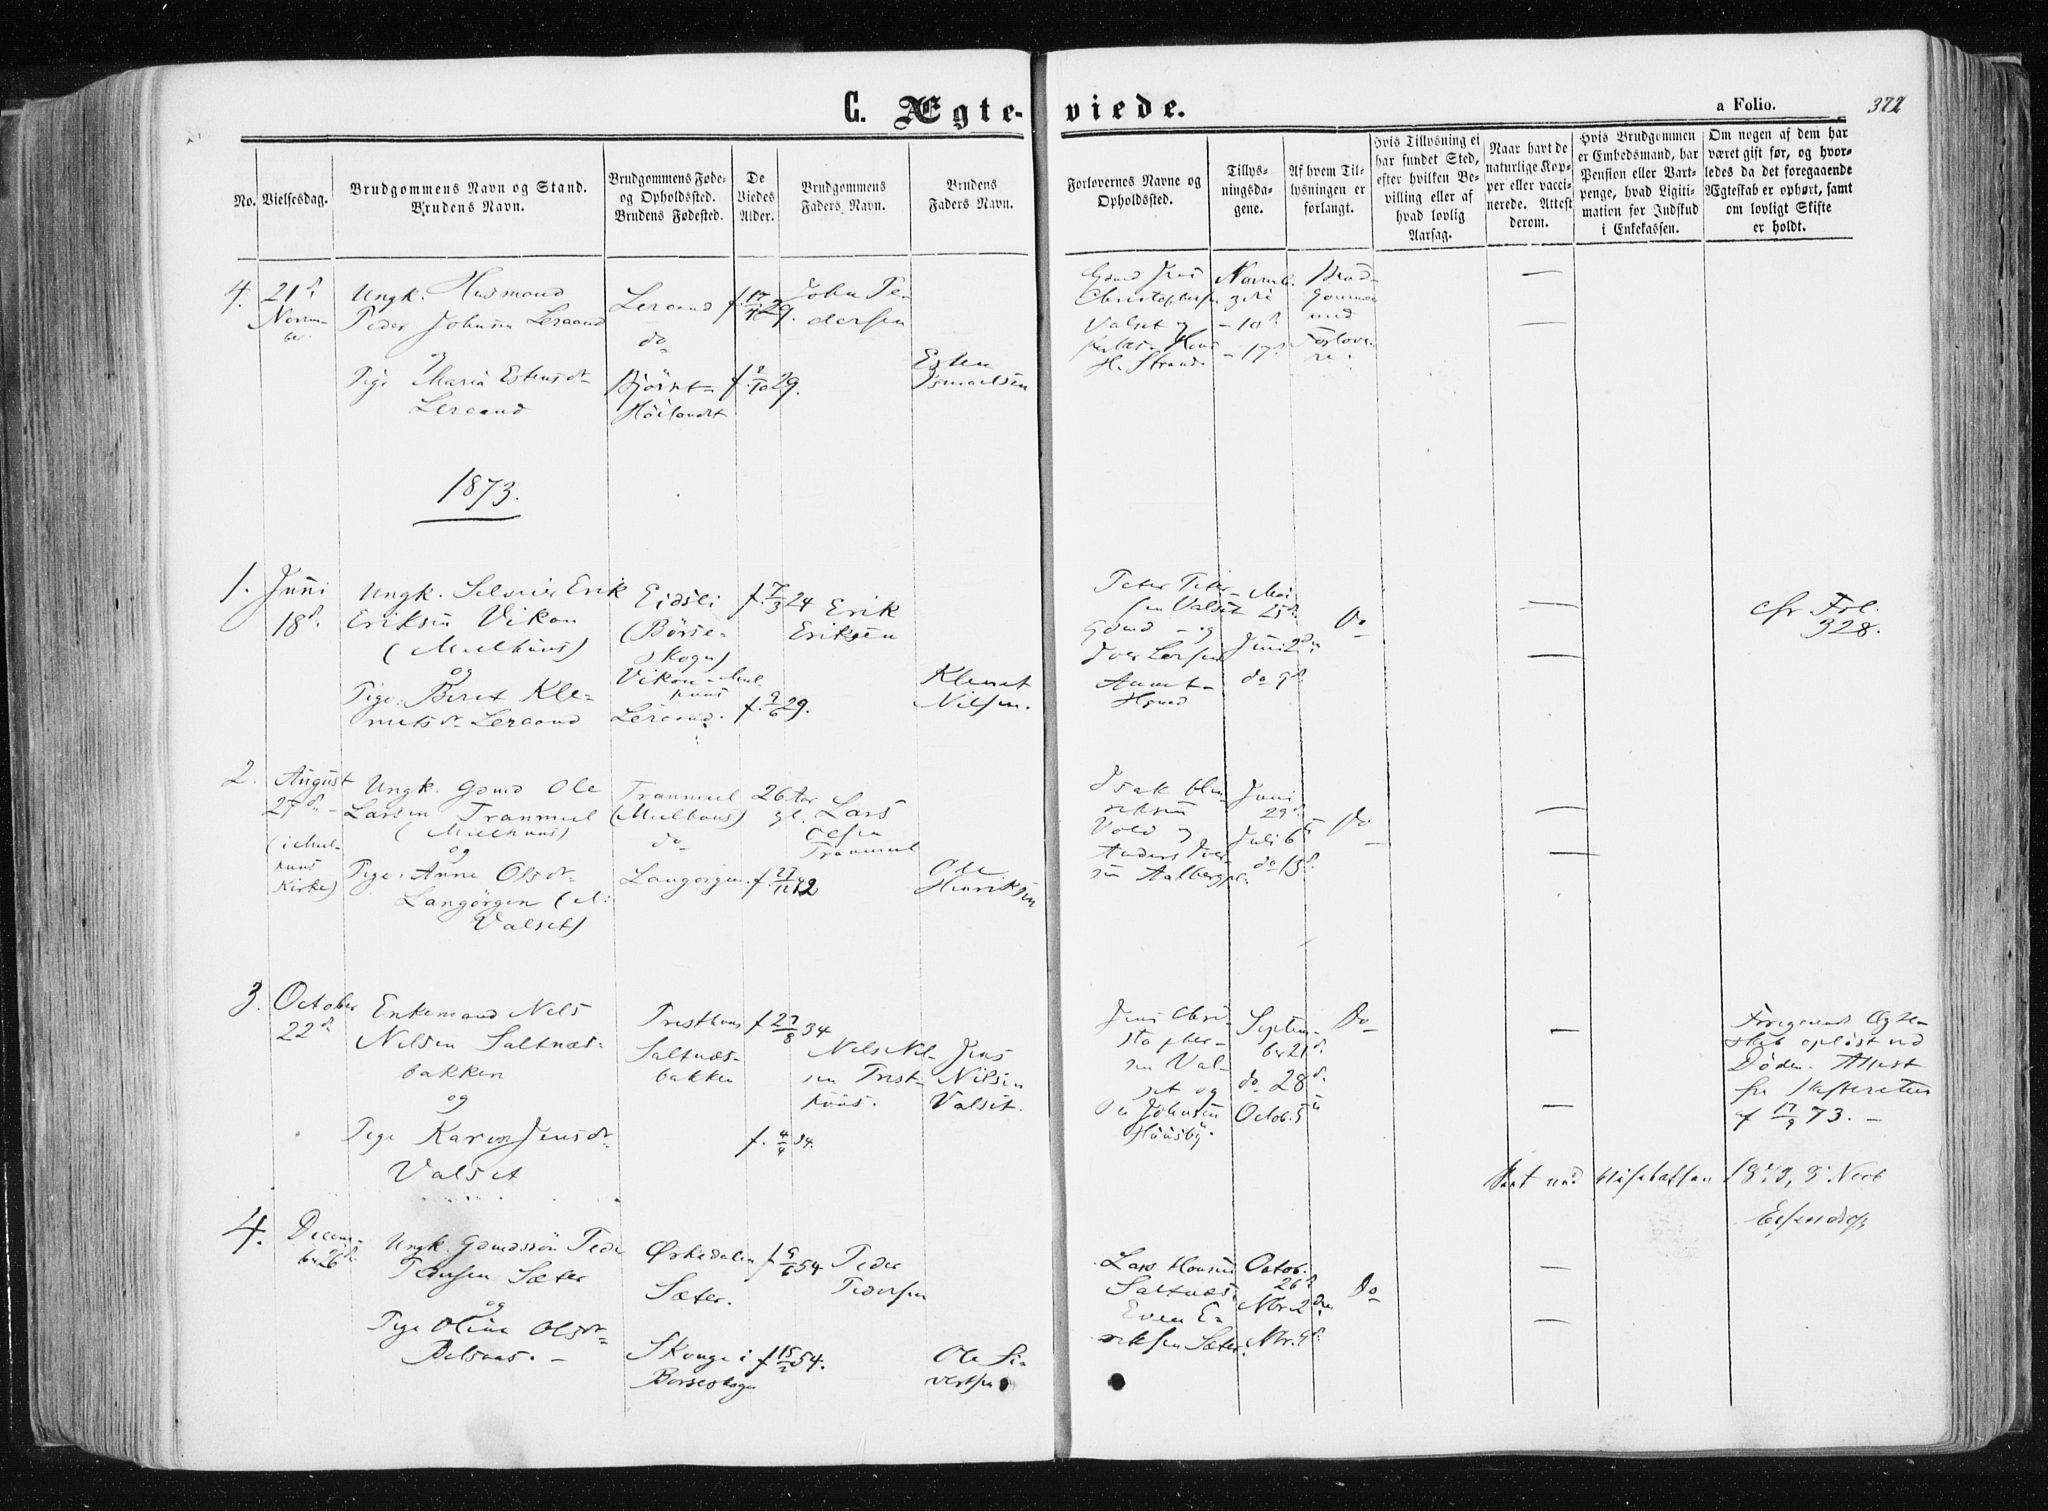 C. Ægte-
viede.
a Folio.
372
No.
Vielsesdag.
Brudgommens Navn og Stand.
Brudens Navn.
Brudgommens Føde-
og Opholdssted.
Brudens Fødested.
De
Viedes
Alder.
Brudgommens
Faders Navn.
Brudens
Faders Navn.
Forlovernes Navne og
Opholdssted.
Tillys-
ningsda-
gene.
Af hvem Til-
lysningen er
forlangt.
Hvis Tillysning ei
har fundet Sted,
efter hvilken Be-
villing eller af
hvad lovlig
Aarsag.
Naar havt de
naturlige Kop-
per eller vacci-
nerede. Attest
derom.
Hvis Brudgommen
er Embedsmand, har
Pension eller Vart-
penge, hvad Ligiti-
mation for Indskud
i Enkekassen.
Om nogen af dem har
været gift før, og hvor-
ledes da det foregaaende
Ægteskab er ophørt, samt
om lovligt Skifte
er holdt.
4.
21d
Novem-
ber.
Ungk. Husmand
Peder Johnsen Leraand
og
Pige Maria Estensdr
Leraand
Leraand
do
Björnt-
Höilandet
f. 29.
f. 2/10 29.
John Pe-
dersen
Esten
Ismaelsen
Gmd Jens
Christophersen
Valset og
H. Strand.
Novmb.
3die
- 10d
- 17d
Brud-
gommen
med
Forlove-
re.
1873.
1.
Juni
18d
Ungk. Selveier Erik
Eriksen Vikan
(Melhuus)
og
Pige. Beret Kle-
metsdr Leraand
Eidsli
(Börse-
skogn)
Vikan - Mel-
huus
Leraand.
f. 7/3 24
f. 9/6 29.
Erik
Eriksen
Klemet
Nilsen.
Peter Peter-
sen Valset
Gmd - og
Iver Larsen
Mai
25d
Juni 2den
do 9d
Do
cfr Fol.
328.
2.
August
27d -
(i Mel-
huus
Kirke)
Ungk. Gmd Ole
Larsen Tranmæl
(Melhuus)
og
Pige. Anne Olsdr
Langörgen (
Valset)
Tranmæl
(Melhuus)
do
Langörgen.
26 Aar
gl.
Lars
Olsen
Tranmæl
Ole
Henriksen
Isak Hen-
riksen
Vold og
Anders Iver-
sen
Juni
29d
Juli 6te
do 13d
Do
3.
October
22d
Enkemand Nels
Nelsen Saltnæs-
bakken
og
Pige Karen Jensdr
Valset
Presthuus
Saltnæs-
bakken
f. 27/8 34
f. 4/4 34.
Nels Nel-
sen Prest-
huus.
Jens
Nilsen
Valset.
Jens Chri-
stopher-
sen Val-
set og
Ole Johnsen
Huusby.
Septem-
ber 21d
do 28d
Octob. 5te
Do
Foregaaende Ægte-
skab opløst ved
Døden. Attest
fra Skifteretten
af 17/9 73. -
4.
Decem-
ber 26d
Ungk. Gmdssön Peder
Pedersen Sæter
og
Pige Oline Olsdr
Ørkedalen
Sæter.
Skauge i
Børseskogn
f. 54.
f. 15/2 54.
Peder
Pedersen
Ole Si-
vertsen
Lars Hansen
Saltnæs.
Even E-
riksen Sæter.
Octob.
26d
Nbr. 2den
Nbr. 9d
Do